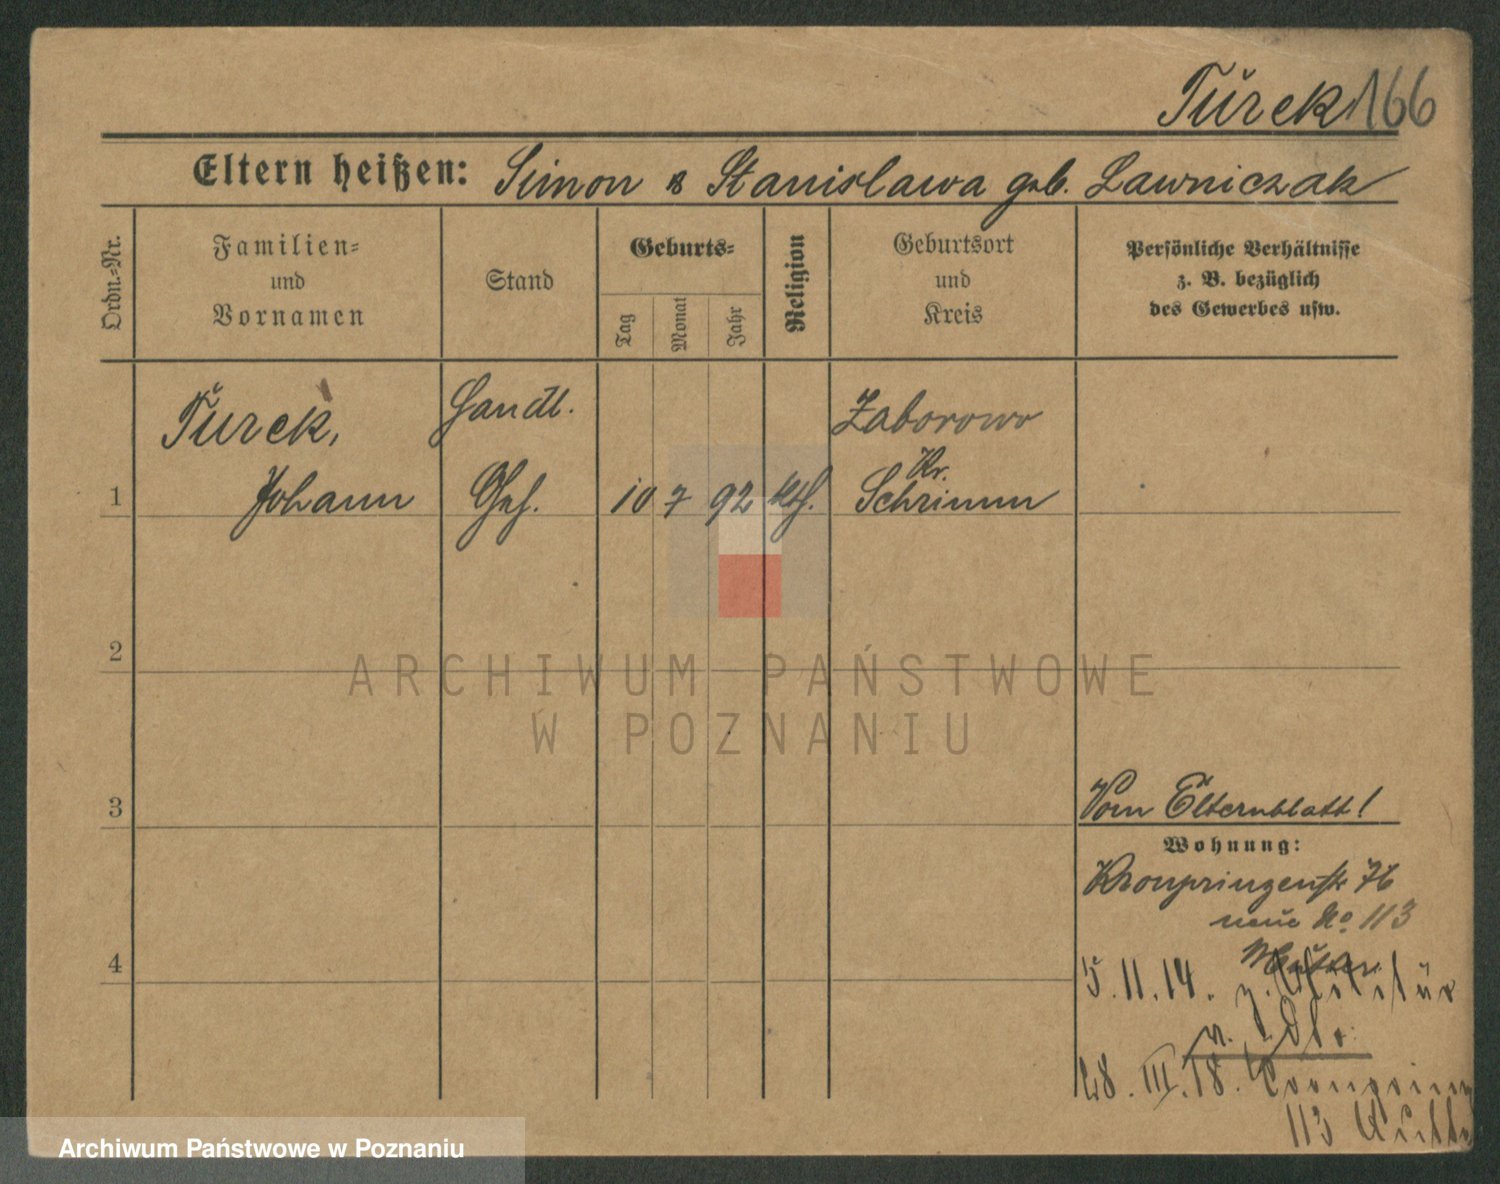 Turek 166
Eltern heißen: Simon & Stanislawa geb. Lawniczak
Ordn.-Nr.
Familien-
und
Vornamen
Stand
Geburts-
Tag
Monat
Jahr
Religion
Geburtsort
und
Kreis
Persönliche Verhältnisse
z. B. bezüglich
des Gewerbes usw.
Turek, Handl. Zaborowo
Kr.
1 Johann Geh. 10 7 92 kth. Schrimm
2
3
Vom Elternblatt!
Wohnung:
Kronprinzenstr 76
neue No 113
Mutter
4
5.11.14. z. Militär
28. III. 18. Kronprinz
113 Mutter
ARCHIWUM PAŃSTWOWE
W POZNANIU
Archiwum Państwowe w Poznaniu